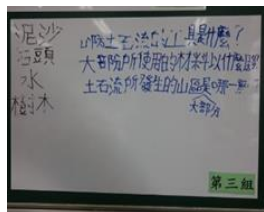 泥沙
石頭
水
樹木
防土石流的工具是什麼?
大部份所使用的材料以什麼
土石流所發生的山區是哪一
大部分
第三組